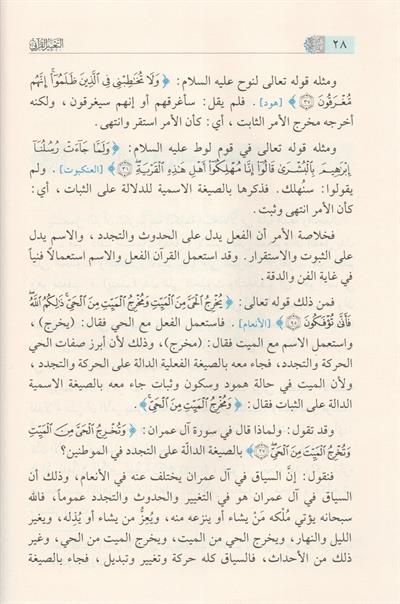 ٢٨ التعبير القرآني
ومثله قوله تعالى لنوح عليه السلام: ﴿وَلَا تُخَٰطِبْنِي فِي ٱلَّذِينَ ظَلَمُوٓا۟ إِنَّهُم
مُّغْرَقُونَ ﴿٣٧﴾﴾ [هود]. فلم يقل: سأغرقهم أو إنهم سيغرقون، ولكنه
أخرجه مخرج الأمر الثابت، أي: كأن الأمر استقر وانتهى.
ومثله قوله تعالى في قوم لوط عليه السلام: ﴿وَلَمَّا جَآءَتْ رُسُلُنَآ
إِبْرَٰهِيمَ بِٱلْبُشْرَىٰ قَالُوٓا۟ إِنَّا مُهْلِكُوٓا۟ أَهْلِ هَٰذِهِ ٱلْقَرْيَةِ ﴿٣١﴾﴾ [العنكبوت]. ولم
يقولوا: سنُهلك. فذكرها بالصيغة الاسمية للدلالة على الثبات، أي:
كأن الأمر انتهى وثبت.
فخلاصة الأمر أن الفعل يدل على الحدوث والتجدد، والاسم يدل
على الثبوت والاستقرار. وقد استعمل القرآن الفعل والاسم استعمالاً فنياً
في غاية الفن والدقة.
فمن ذلك قوله تعالى: ﴿يُخْرِجُ ٱلْحَىَّ مِنَ ٱلْمَيِّتِ وَمُخْرِجُ ٱلْمَيِّتِ مِنَ ٱلْحَىِّ ذَٰلِكُمُ ٱللَّهُ
فَأَنَّىٰ تُؤْفَكُونَ ﴿٩٥﴾﴾ [الأنعام]. فاستعمل الفعل مع الحي فقال: (يخرج)،
واستعمل الاسم مع الميت فقال: (مخرج)، وذلك لأن أبرز صفات الحي
الحركة والتجدد، فجاء معه بالصيغة الفعلية الدالة على الحركة والتجدد،
ولأن الميت في حالة همود وسكون وثبات جاء معه بالصيغة الاسمية
الدالة على الثبات فقال: ﴿وَمُخْرِجُ ٱلْمَيِّتِ مِنَ ٱلْحَىِّ﴾.
وقد تقول: ولماذا قال في سورة آل عمران: ﴿وَتُخْرِجُ ٱلْحَىَّ مِنَ ٱلْمَيِّتِ
وَتُخْرِجُ ٱلْمَيِّتَ مِنَ ٱلْحَىِّ ﴿٢٧﴾﴾ بالصيغة الدالّة على التجدد في الموطنين؟
فنقول: إنَّ السياق في آل عمران يختلف عنه في الأنعام، وذلك أن
السياق في آل عمران هو في التغيير والحدوث والتجدد عموماً، فالله
سبحانه يؤتي مُلْكه مَنْ يشاء أو ينزعه منه، ويعُزُّ من يشاء أو يُذِله، ويغير
الليل والنهار، ويخرج الحي من الميت، ويخرج الميت من الحي، وغير
ذلك من الأحداث، فالسياق كله حركة وتغيير وتبديل، فجاء بالصيغة